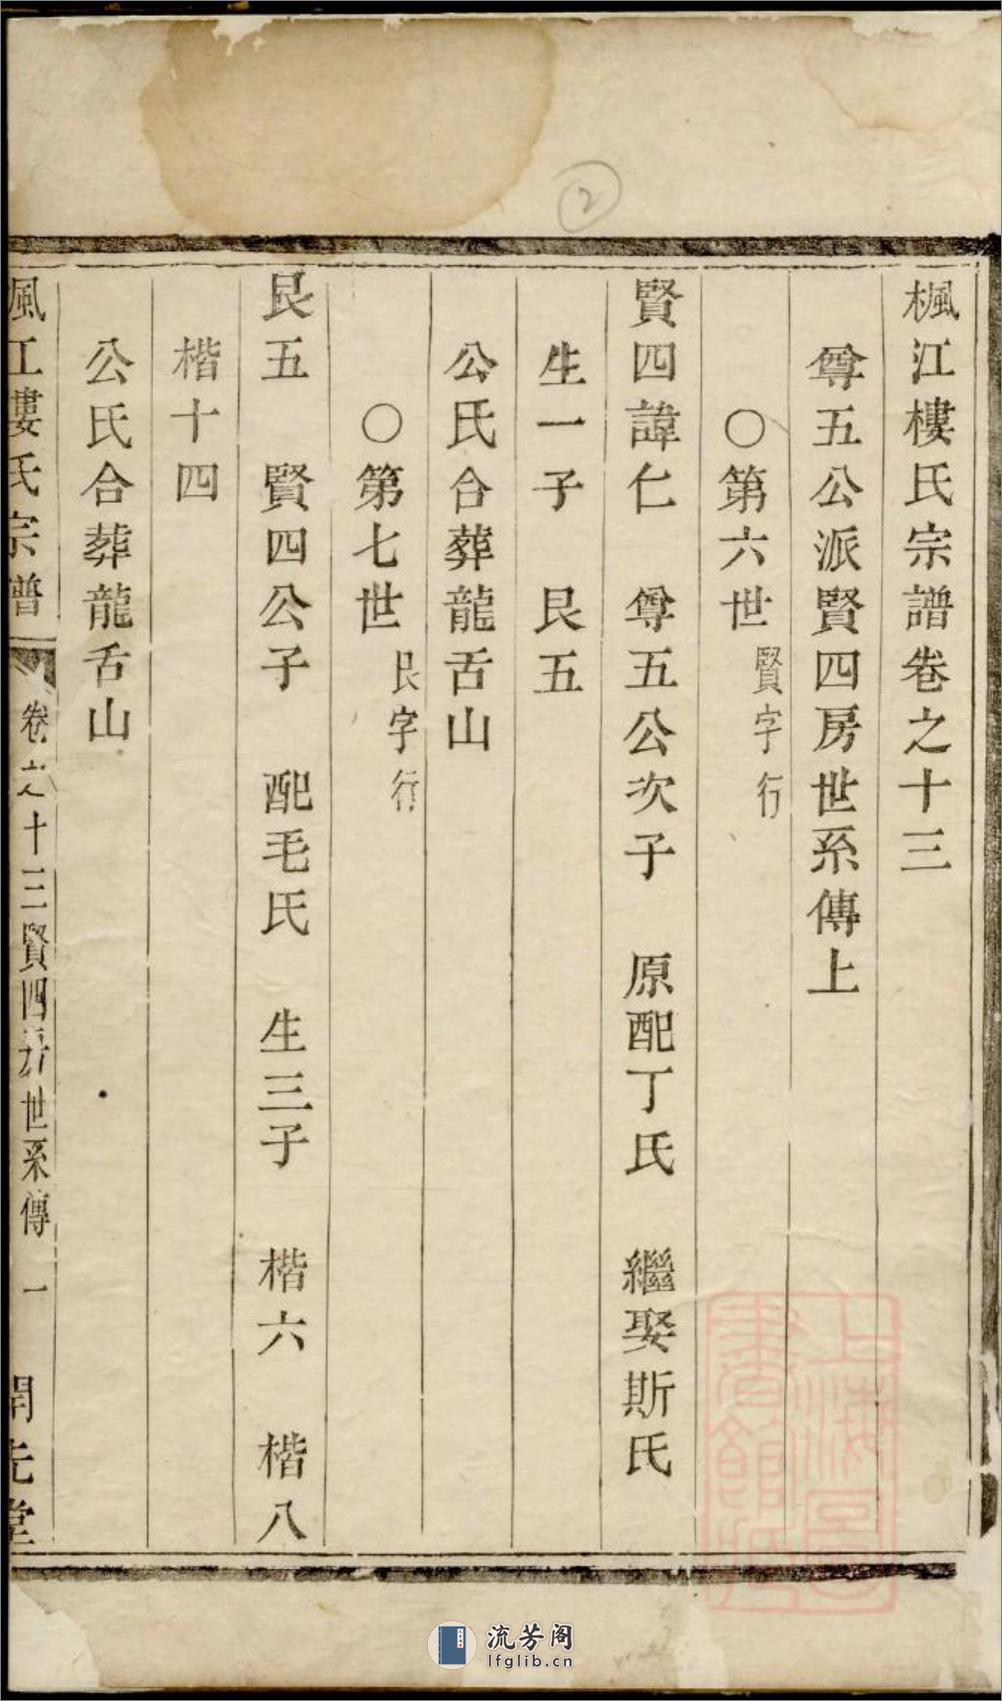 楓江樓氏宗譜卷之十三
尊五公派賢四房世系傳上
○第六世 賢字行
賢四諱仁 尊五公次子 原配丁氏 繼娶斯氏
生一子 艮五
公氏合葬龍舌山
○第七世 艮字行
艮五 賢四公子 配毛氏 生三子 楷六 楷八
楷十四
公氏合葬龍舌山
楓江樓氏宗譜 卷之十三 賢四房世系傳 一 開先堂
2
上海圖書館藏
流芳阁
lfglib.cn